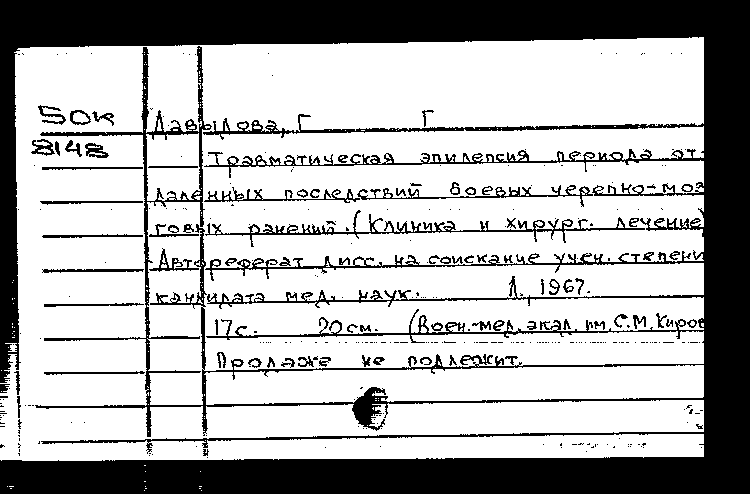 50к
8148
Давыдова, Г Г
Травматическая эпилепсия периода от-
даленных последствий боевых черепно-моз
говых ранений. (Клиника и хирург. лечение)
Автореферат дисс. на соискание учен. степени
кандидата мед. наук. Л., 1967.
17с. 20см. (Воен.-мед. акад. им. С.М. Киров
Продаже не подлежит.